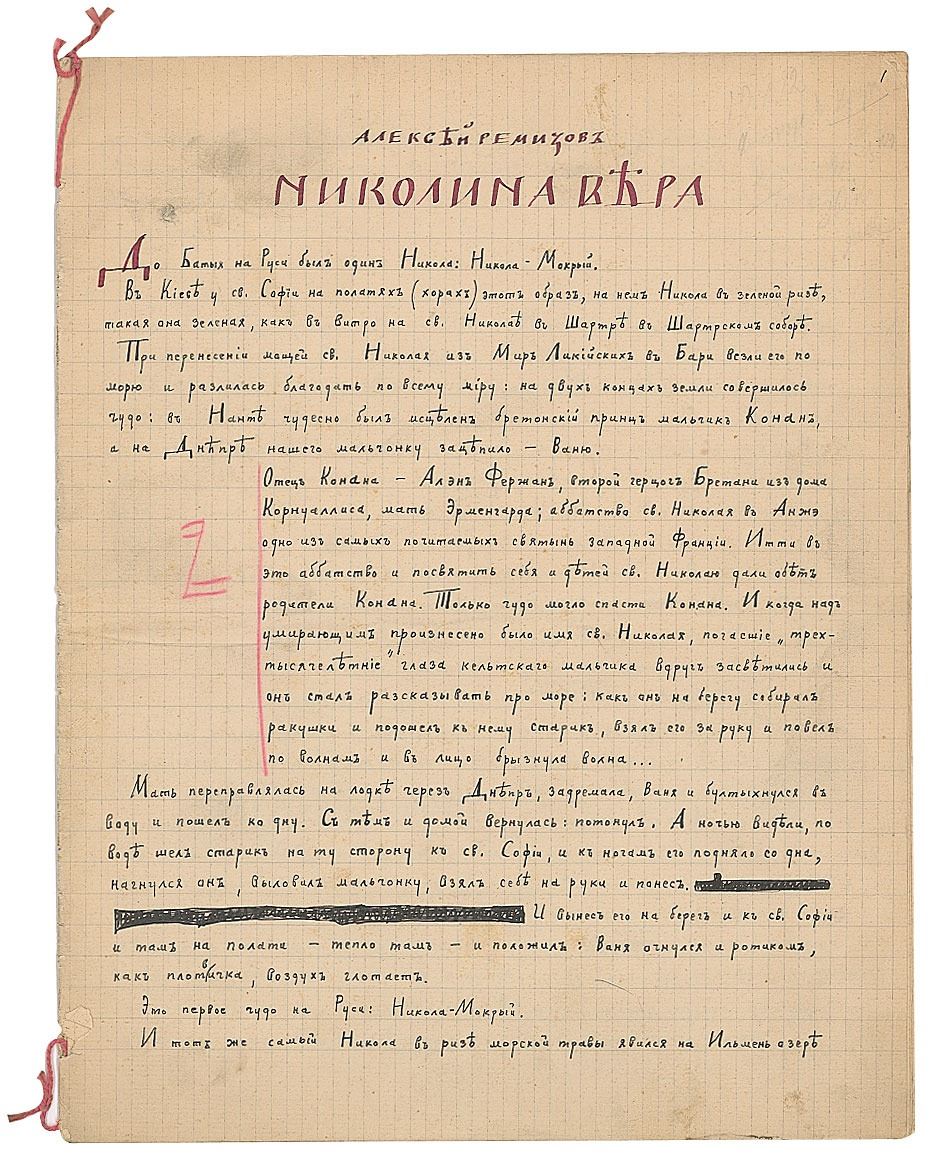 1
АЛЕКСѢЙ РЕМИЗОВЪ
НИКОЛИНА ВѢРА
До Батыя на Руси былъ одинъ Никола: Никола-Мокрый.
Въ Кіевѣ у св. Софіи на полатяхъ (хорахъ) этотъ образ, на немъ Никола въ зеленой ризѣ,
такая она зеленая, какъ въ витро на св. Николаѣ въ Шартрѣ въ Шартрскомъ соборѣ.
При перенесеніи мощей св. Николая изъ Миръ Ликійскихъ въ Бари везли его по
морю и разлилась благодать по всему міру: на двухъ концахъ земли совершилось
чудо: въ Нантѣ чудесно былъ исцѣленъ бретонскій принцъ мальчикъ Конанъ,
а на Днѣпрѣ нашего мальчонку зацѣпило — Ваню.
2
Отецъ Конана — Алэнъ Фержанъ, второй герцогъ Бретани изъ дома
Корнуаллиса, мать Эрменгарда; аббатство св. Николая въ Анжэ
одно изъ самыхъ почитаемыхъ святынь западной Франціи. Итти въ
это аббатство и посвятить себя и дѣтей св. Николаю дали обѣтъ
родители Конана. Только чудо могло спасти Конана. И когда надъ
умирающимъ произнесено было имя св. Николая, погасшіе „трех-
тысячелѣтніе" глаза кельтскаго мальчика вдругъ засвѣтились и
онъ сталъ разсказывать про море: какъ онъ на берегу собиралъ
ракушки и подошелъ къ нему старикъ, взялъ его за руку и повелъ
по волнамъ и въ лицо брызнула волна...
Мать переправлялась на лодкѣ черезъ Днѣпръ, задремала, Ваня и бултыхнулся въ
воду и пошелъ ко дну. Съ тѣмъ и домой вернулась: потонулъ. А ночью видѣли, по
водѣ шелъ старикъ на ту сторону къ св. Софіи, и къ ногамъ его подняло со дна,
нагнулся онъ, выловилъ мальчонку, взялъ себѣ на руки и понесъ.
И вынесъ его на берегъ и къ св. Софіи
и тамъ на полати — тепло тамъ — и положилъ: Ваня очнулся и ротикомъ,
какъ плотвичка, воздухъ глотаетъ.
Это первое чудо на Руси: Никола-Мокрый.
И тотъ же самый Никола въ ризѣ морской травы явился на Ильмень озерѣ